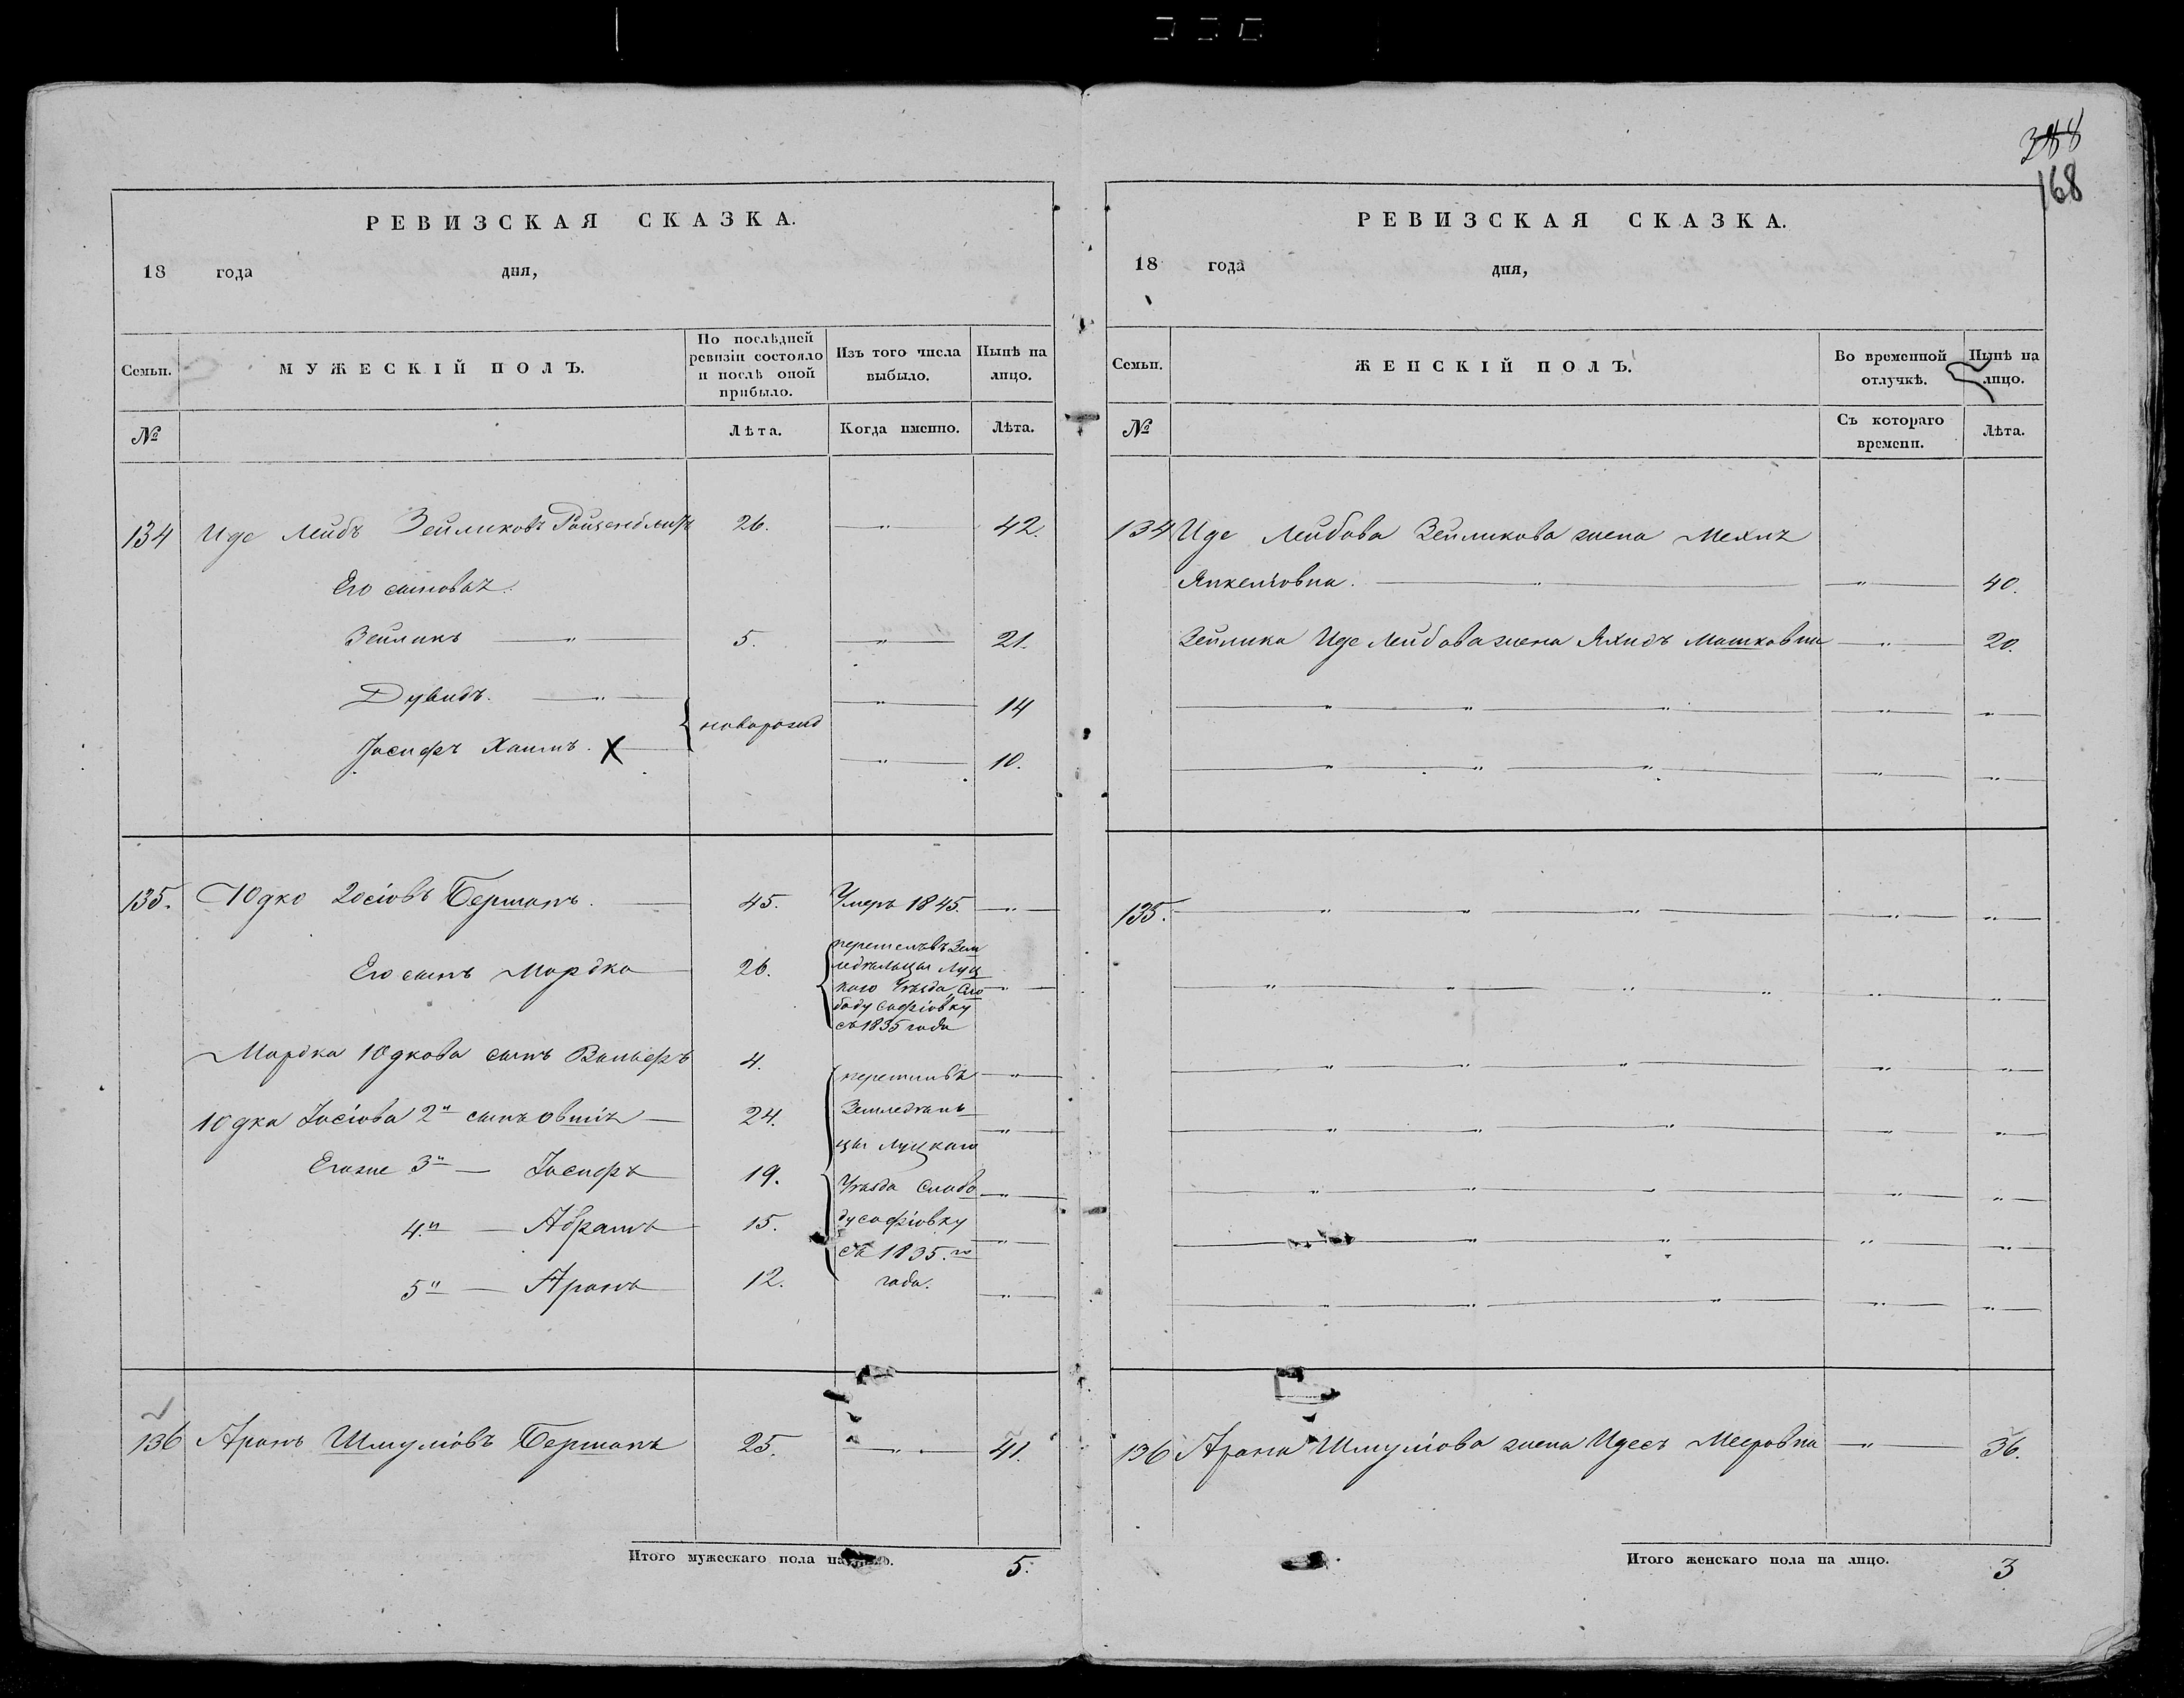 388
168
РЕВИЗСКАЯ СКАЗКА.
18 года дня,
Семьи.
МУЖЕСКІЙ ПОЛЪ.
По послѣдней
ревизіи состояло
и послѣ оной
прибыло.
Изъ того числа
выбыло.
Нынѣ на
лицо.
№
Лѣта.
Когда именно.
Лѣта.
134 Иде Лейбъ Зейликовъ 26. — " — 42.
Его сыновья:
Зейликъ — " — 5. — " — 21.
Дувидъ. — " — — " — 14
новорожд
Іосифъ Хаимъ. X — " — 10.
135. Юдко Іосіовъ Берманъ. — 45. Умеръ 1845. — " —
Его сынъ Мордко — 26. — " —
перешелъ въ Зем
ледѣльцы Луц
каго Уѣзда, Сло
боду Софіовку
съ 1835 года
Мордка Юдкова сынъ 4. — " —
Юдка Іосіова 2й сынъ — 24. — " —
Его же 3й — Іосифъ — 19. — " —
4й — Абрамъ — 15. — " —
5й — Аронъ — 12. — " —
Земледѣль
цы Луцкаго
Уѣзда Слобо
ду Софіовку
съ 1835.го
года.
136 Аронъ Шмуліовъ Берманъ 25. — " — 41.
Итого мужескаго пола на лицо. 5.
РЕВИЗСКАЯ СКАЗКА.
18 года дня,
Семьи.
ЖЕНСКІЙ ПОЛЪ.
Во временной
отлучкѣ.
Нынѣ на
лицо.
№
Съ котораго
времени.
Лѣта.
134 Иде Лейбова Зейликова жена
Янкеліовна. — " — — " — 40.
Зейлика Иде Лейбова жена Мошковна — " — 20.
— " — " — " — — " — — " —
— " — " — " — — " — — " —
135. — " — " — " — — " — — " —
— " — " — " — " — — " — — " —
— " — " — " — — " — — " —
— " — " — " — — " — — " —
— " — " — " — — " — — " —
— " — " — " — — " — — " —
— " — " — " — — " — — " —
136 Арона Шмуліова жена Идесъ Мееровна — " — 36.
Итого женскаго пола на лицо. 3